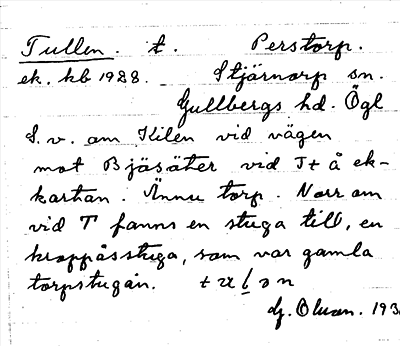 Tullen. t. Perstorp.
ek. kb 1928. Stjärnorp sn.
Gullbergs hd. Ögl
S. v. om Kilen vid vägen
mot Bjäsäter vid T + å ek-
kartan. Ännu torp. Norr om
vid T fanns en stuga till, en
knoppåsstuga, som var gamla
torpstugan.